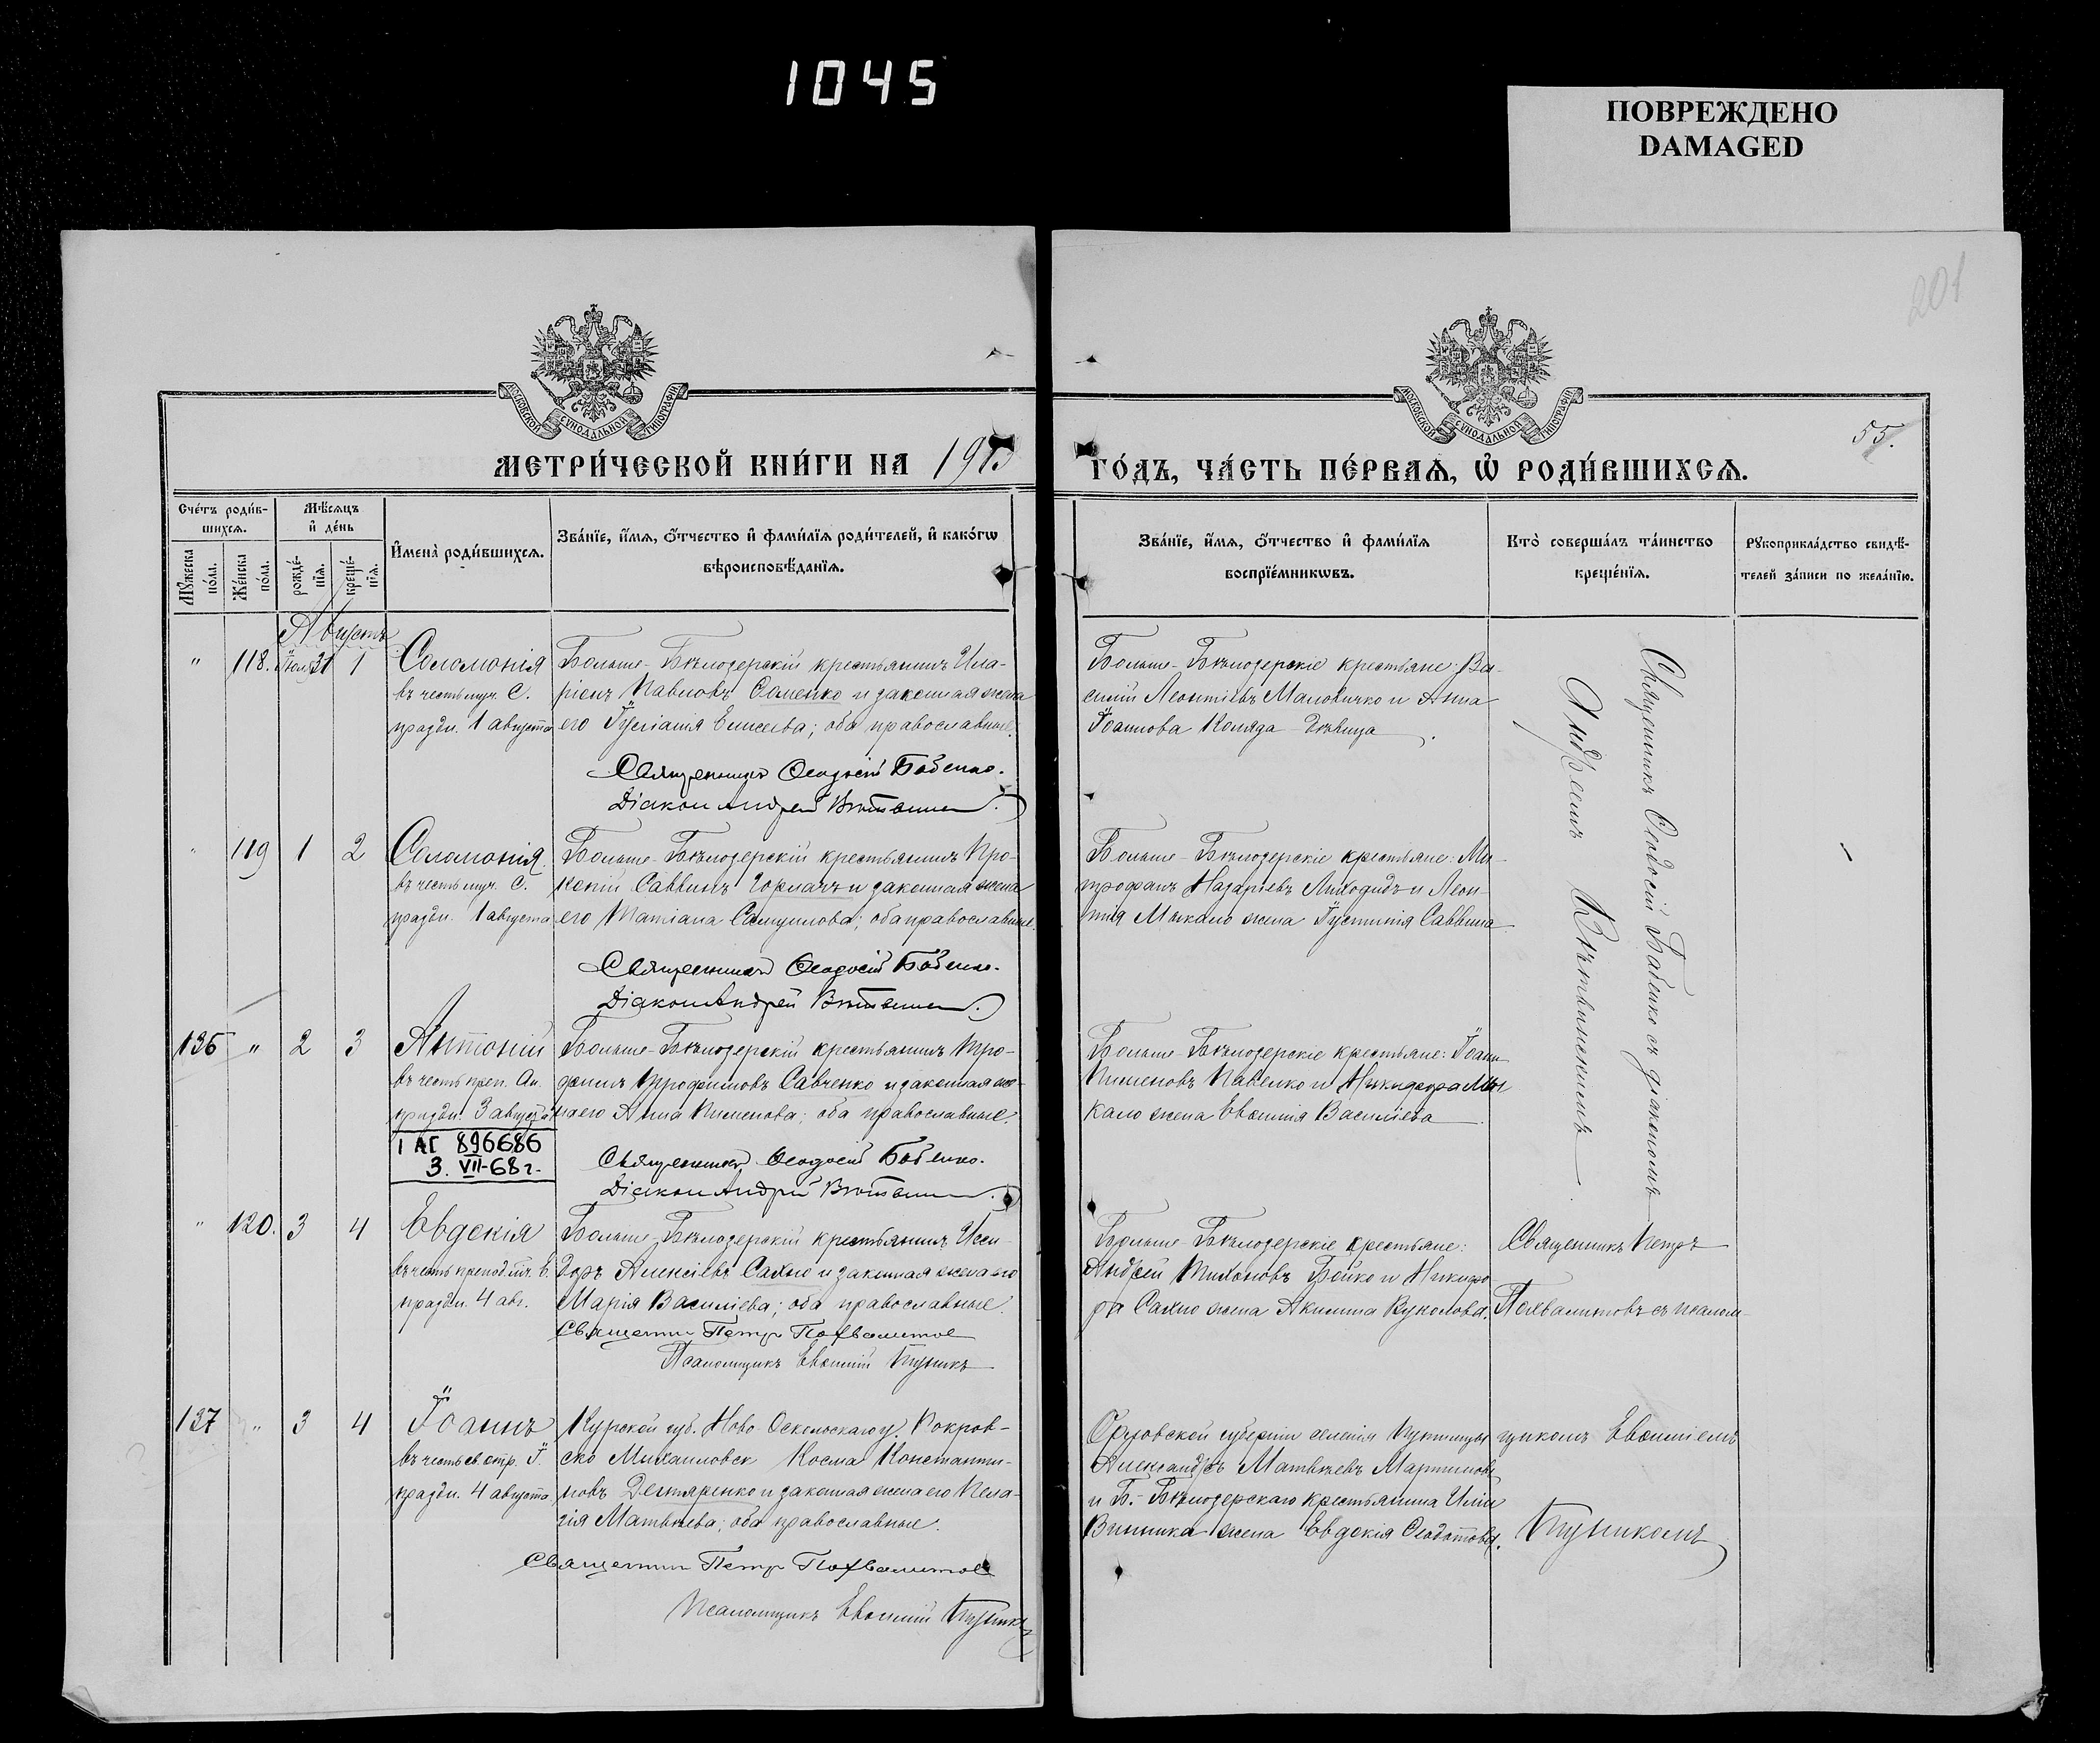 1045
ПОВРЕЖДЕНО
DAMAGED
201
55.
МОСКОВСКОЙ СѴНОДАЛЬНОЙ ТИПОГРАФІИ
МОСКОВСКОЙ СѴНОДАЛЬНОЙ ТИПОГРАФІИ
МЕТРИ́ЧЕСКОЙ КНИ́ГИ НА 1913
ГО́ДЪ, ЧА́СТЬ ПЕ́РВАѦ, Ѡ҆ РОДИ́ВШИХСѦ.
Сче́тъ роди́в-
шихсѧ.
Мꙋжеска по́ла.
Же́нска по́ла.
Мѣ́сѧцъ
и҆ де́нь
рожде́-
нїѧ.
креще́-
нїѧ.
И҆мена̀ роди́вшихсѧ.
Зва́нїе, и҆́мѧ, ѻ҆́тчество и҆ фами́лїѧ роди́телей, и҆ како́гѡ
вѣроисповѣ́данїѧ.
Зва́нїе, и҆́мѧ, ѻ҆́тчество и҆ фами́лїѧ
воспрїе́мникѡвъ.
Кто̀ соверша́лъ та́инство
креще́нїѧ.
Рꙋкоприкла́дство свидѣ́-
телей за́писи по жела́нїю.
Августъ
" 118. Іюл. 31 1 Соломонія
въ честь муч. С.
праздн. 1 августа
Больше-Бѣлозерскій крестьянинъ Ила-
ріонъ Павловъ Семенко и законная жена
его Іуліанія Елисеева; оба православные.
Священникъ Ѳеодосій Бабенко.
Діаконъ Андрей
Больше-Бѣлозерскіе крестьяне: Ва-
силій Леонтіевъ Маловичко и Анна
Іоаннова Коляда дѣвица.
Священникъ Ѳеодосій Бабенко съ діакономъ
Андреемъ
" 119 1 2 Соломонія
въ честь муч. С.
праздн. 1 августа
Больше-Бѣлозерскій крестьянинъ Про-
копій Саввинъ Горлачъ и законная жена
его Татіана Самуилова; оба православные.
Священникъ Ѳеодосій Бабенко.
Діаконъ Андрей
Больше-Бѣлозерскіе крестьяне: Ми-
трофанъ Назаріевъ Лиходидъ и Леон-
тія Мыкало жена Іустинія Саввина
136 " 2 3 Антоній
въ честь преп. Ан.
праздн. 3 августа
Больше-Бѣлозерскій крестьянинъ Тро-
фимъ Трофимовъ Савченко и законная же-
на его Анна Пименова; оба православные.
I АГ 896686
3. VII-68 г.
Священникъ Ѳеодосій Бабенко.
Діаконъ Андрей
Больше-Бѣлозерскіе крестьяне: Іоаннъ
Пименовъ Павелко и Никифора Мы-
кало жена Евфимія Василіева
" 120. 3 4 Евдокія
въ честь препод. мч. Е.
праздн. 4 авг.
Больше-Бѣлозерскій крестьянинъ Иси-
доръ Алексіевъ Сахно и законная жена его
Марія Василіева; оба православные.
Священникъ Петръ Похвалитовъ
Псаломщикъ Евфимій Пуникъ
Больше-Бѣлозерскіе крестьяне:
Андрей Тихоновъ Бойко и Никифо-
ра Сахно жена Акилина Вуколова.
Священникъ Петръ
Похвалитовъ съ псалом-
137 " 3 4 Іоаннъ
въ честь св. отр. І.
праздн. 4 августа
Курской губ. Ново-Оскольскаго у. Покров-
ско Михаиловск Косма Константи-
новъ Дегтяренко и законная жена его Пела-
гія Матвѣева; оба православные.
Священникъ Петръ Похвалитовъ
Псаломщикъ Евфимій Пуникъ
Орловской губерніи селенія
Александръ Матвѣевъ Мартиновъ
и Б.-Бѣлозерскаго крестьянина Иліи
Винника жена Евдокія Ѳеодотова.
щикомъ Евфиміемъ
Пуникомъ